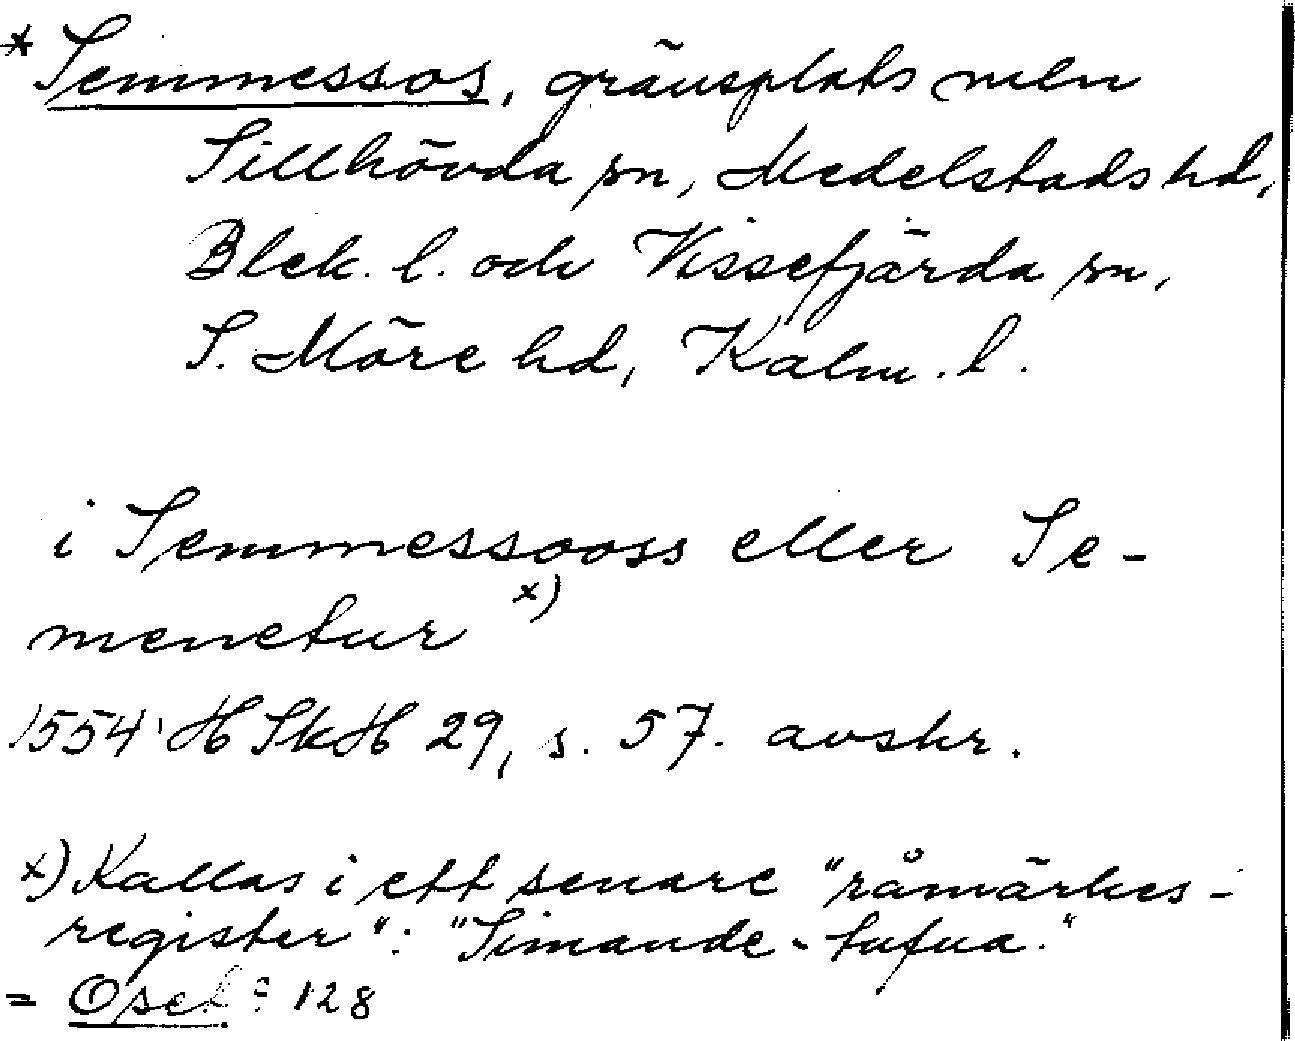 * Semmessos, gränsplats mln
Sillhövda sn, Medelstads hd,
Blek. l. och Vissefjärda sn,
S. Möre hd, Kalm. l.
i Semmessooss eller Se-
menetur x)
1554 HSkH 29, s. 57. avskr.
x) Kallas i ett senare "råmärkes-
register": "Simande-tufua."
= 128